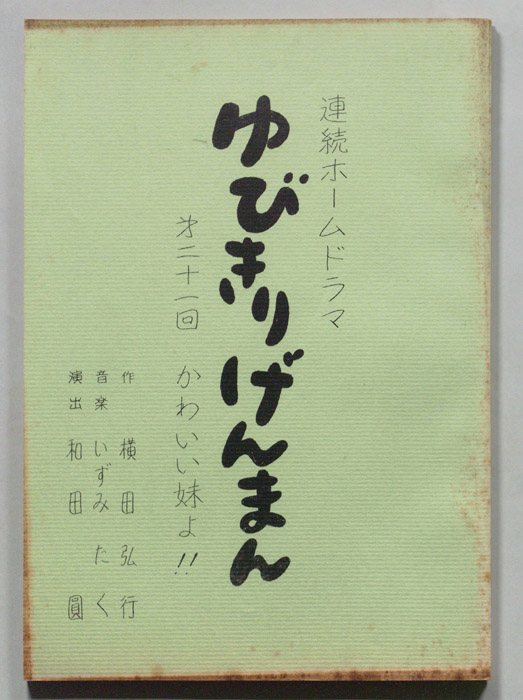 連続ホームドラマ
ゆびきりげんまん
第二十一回 かわいい妹よ!!
作 横田弘行
音楽 いずみたく
演出 和田圓